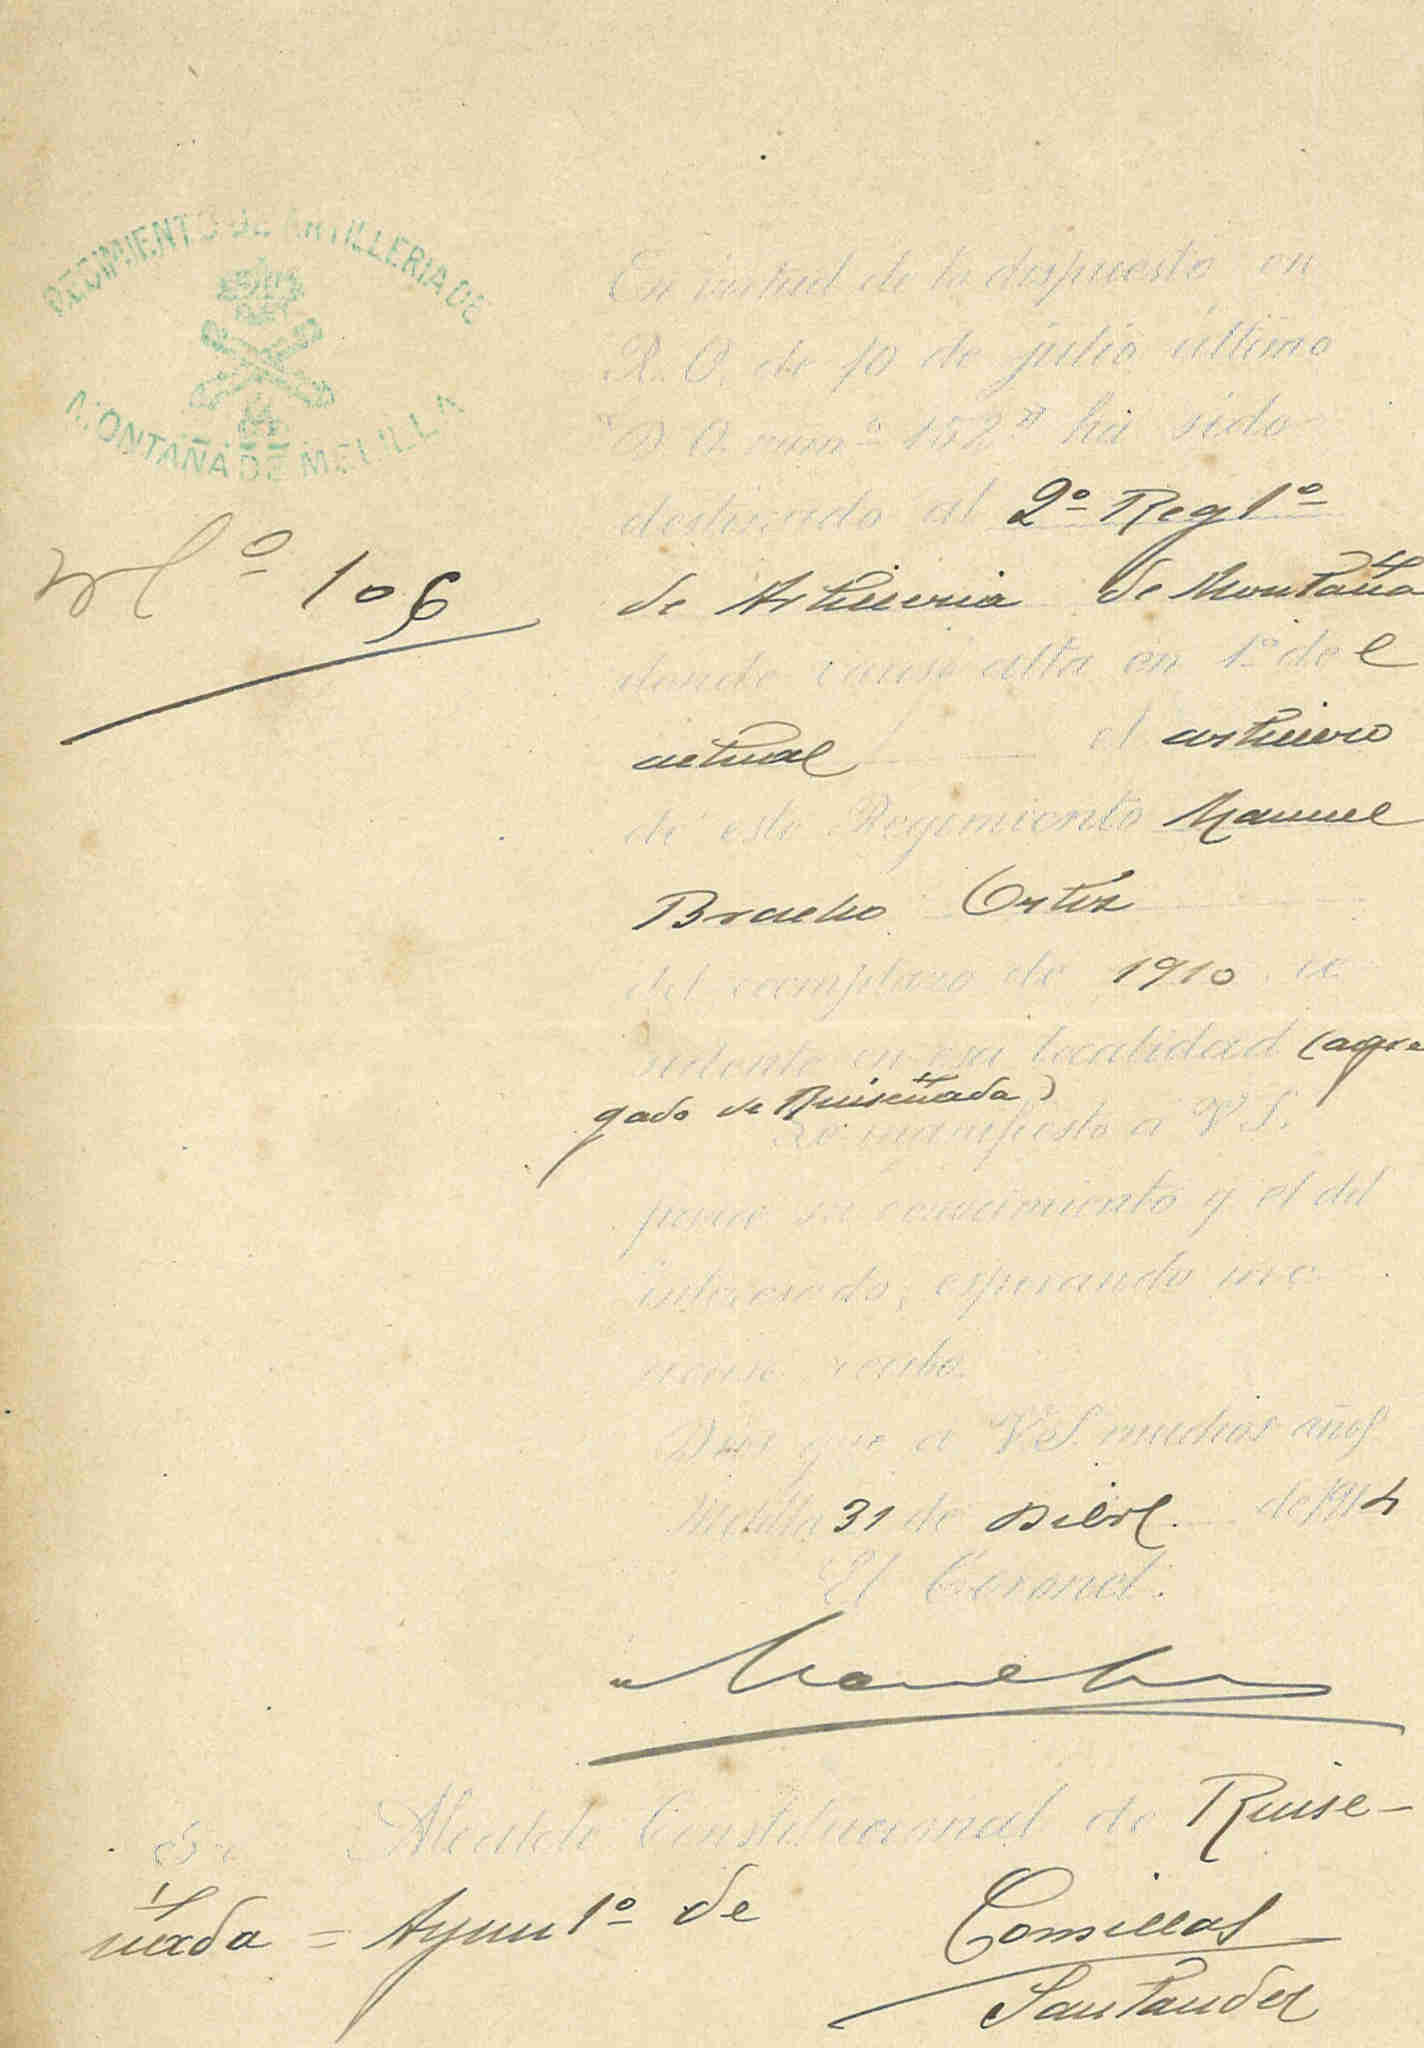 REGIMIENTO DE ARTILLERIA DE
MONTAÑA DE MELILLA
Nº 106
En virtud de lo dispuesto en
R. O. de 10 de julio último
D. O. numº 152" ha sido
destinado al 2º Regtº
de Artilleria de Montaña
donde causó alta en 1º de l
actual el artillero
de este Regimiento Manuel
Bracho Ortiz
del reemplazo de 1910 re-
sidente en esa localidad (agre
gado de Ruiseñada)
Lo manifiesto a V S.
para su conocimiento y el del
interesado, esperando me
acuse recibo.
Dios gue a V.S. muchos años
Melilla 31 de Dibre. de 1914
El Coronel.
Sr Alcalde Constitucional de Ruise-
ñada = Ayuntº de Comillas
Santander